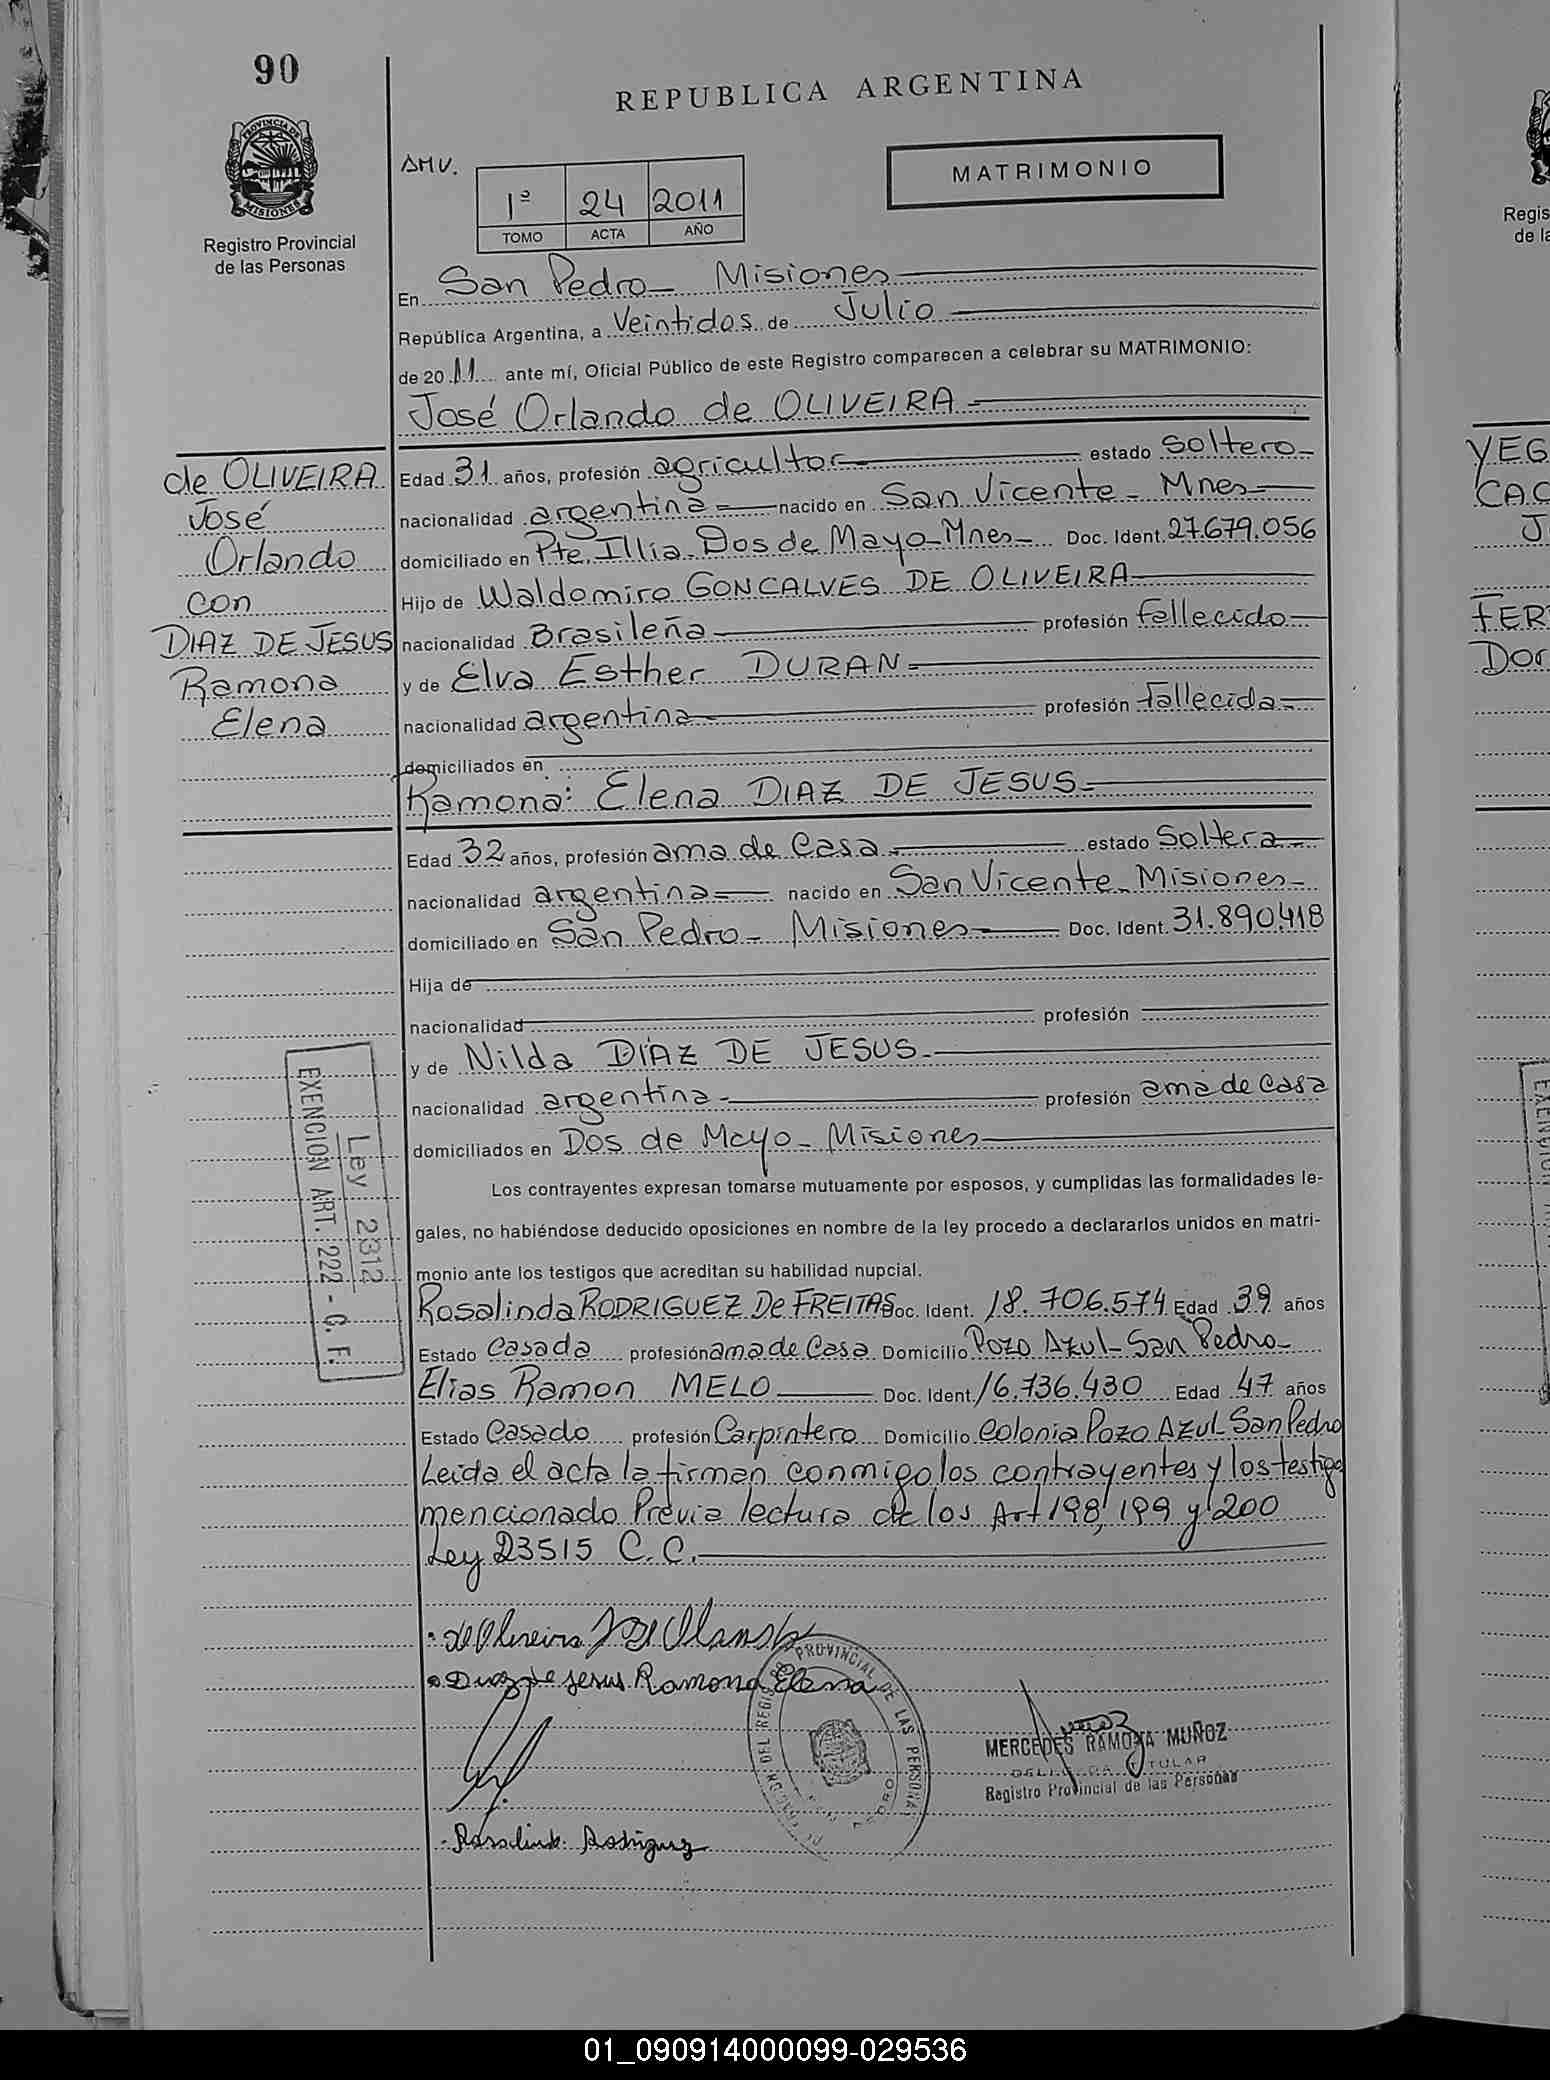 90
REPUBLICA ARGENTINA
PROVINCIA DE
MISIONES
Registro Provincial
de las Personas
DMV.
1º 24 2011
TOMO ACTA AÑO
MATRIMONIO
En San Pedro - Misiones
República Argentina, a Veintidos de Julio
de 2011 ante mí, Oficial Público de este Registro comparecen a celebrar su MATRIMONIO:
José Orlando de OLIVEIRA
de OLIVEIRA
José
Orlando
con
DIAZ DE JESUS
Ramona
Elena
Edad 31 años, profesión agricultor estado Soltero
nacionalidad argentina nacido en San Vicente - Mnes
domiciliado en Pte. Illia - Dos de Mayo - Mnes - Doc. Ident. 27.679.056
Hijo de Waldomiro GONCALVES DE OLIVEIRA
nacionalidad Brasileña profesión fallecido
y de Elva Esther DURAN
nacionalidad argentina profesión fallecida
domiciliados en
Ramona: Elena DIAZ DE JESUS
Edad 32 años, profesión ama de Casa estado Soltera
nacionalidad argentina nacido en San Vicente - Misiones
domiciliado en San Pedro - Misiones Doc. Ident. 31.890.418
Hija de
nacionalidad profesión
y de Nilda DIAZ DE JESUS
nacionalidad argentina profesión ama de Casa
domiciliados en Dos de Mayo - Misiones
Ley 2312
EXENCION ART. 222 - C. F.
Los contrayentes expresan tomarse mutuamente por esposos, y cumplidas las formalidades le-
gales, no habiéndose deducido oposiciones en nombre de la ley procedo a declararlos unidos en matri-
monio ante los testigos que acreditan su habilidad nupcial.
Rosalinda RODRIGUEZ DE FREITAS Doc. Ident. 18.706.574 Edad 39 años
Estado Casada profesión ama de Casa Domicilio Pozo Azul - San Pedro
Elias Ramon MELO Doc. Ident 16.736.430 Edad 47 años
Estado Casado profesión Carpintero Domicilio Colonia Pozo Azul San Pedro
Leida el acta la firman conmigo los contrayentes y los testigo
mencionado Previa lectura de los Art 198, 199 y 200
Ley 23515 C.C.
de Oliveira José Orlando
Diaz de Jesus Ramona Elena
PROVINCIAL DE LAS PERSONAS
MERCEDES RAMONA MUÑOZ
DELEGADA TITULAR
Registro Provincial de las Personas
Rosalinda Rodriguez
Regis
de la
YEG
CAC
J
FER
Dor
01_090914000099-029536